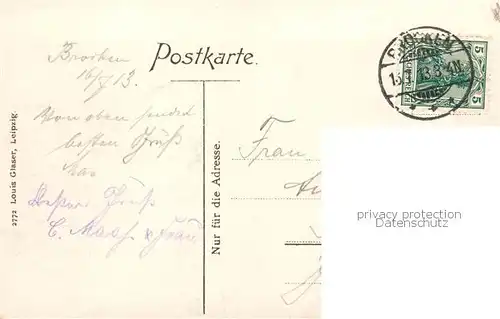 Brocken
16/7 13.
Von oben sendet
besten Gruß
Besten Gruß
C. Maaß u. Frau
2772 Louis Glaser, Leipzig.
Postkarte.
Nur für die Adresse.
BROCKEN
5 5
Frau
privacy protection
Datenschutz